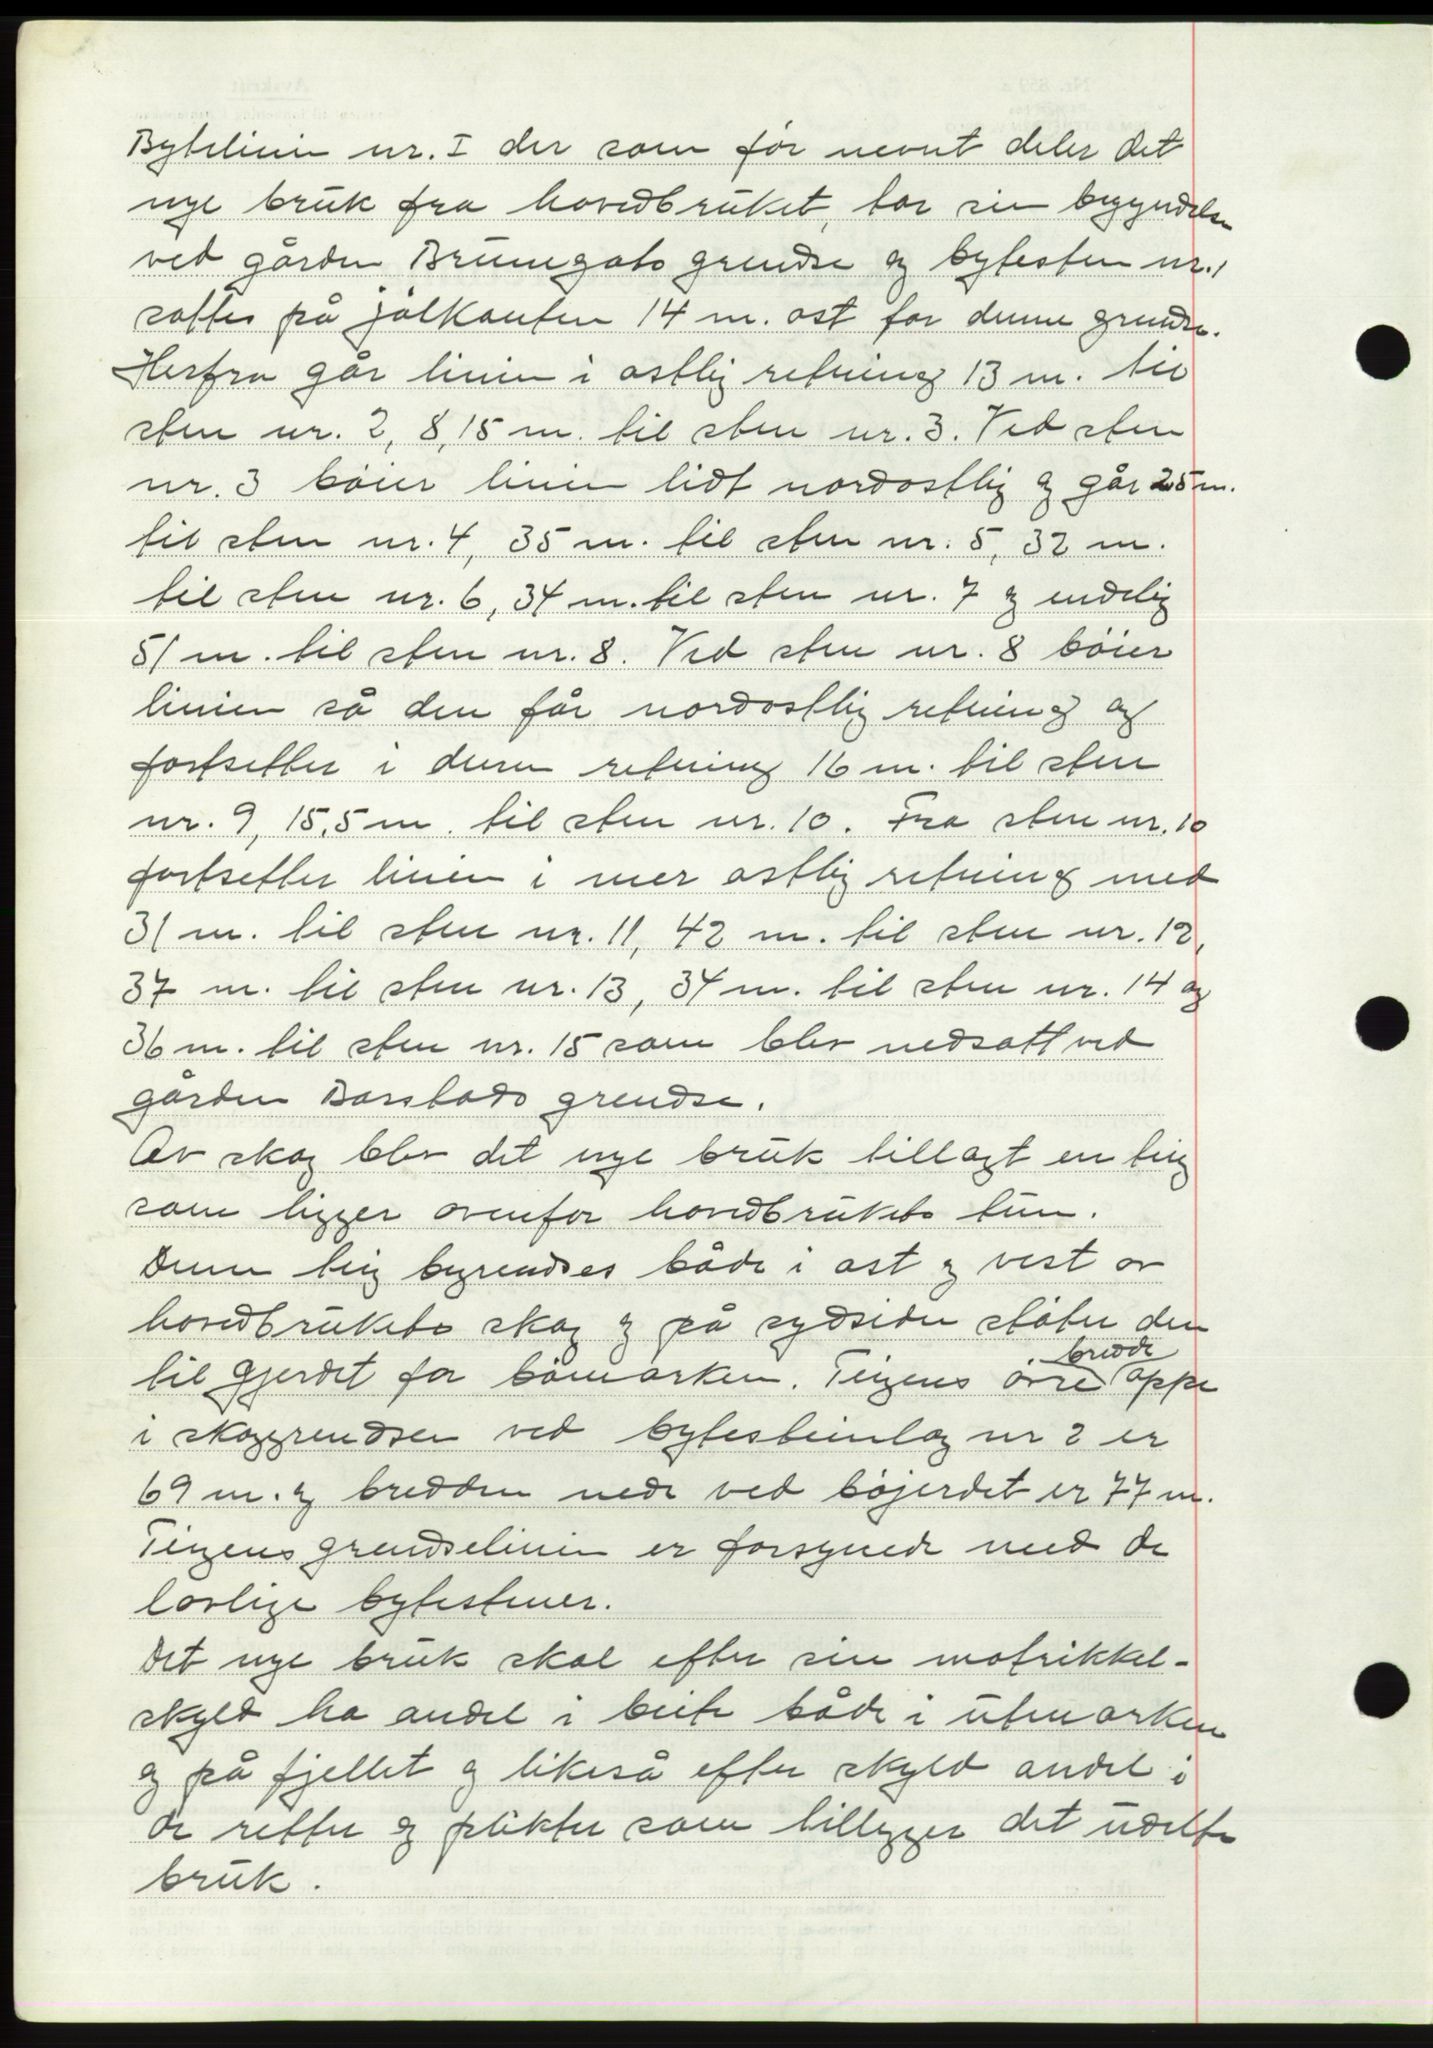 Bytelinien nr. I der som før nevnt deler det
nye bruk fra hovedbruket, tar sin begyndelse
ved gården Brunegots grendse og bytesten nr. 1
sattes på jölkanten 14 m. ost for denne grendse.
Herfra går linien i ostlig retning 13 m. til
sten nr. 2, 8,15 m. til sten nr. 3. Ved sten
nr. 3 böier linien lidt nordostlig og går 25 m.
til sten nr. 4, 35 m. til sten nr. 5, 32 m.
til sten nr. 6, 34 m. til sten nr. 7 og endelig
51 m. til sten nr. 8. Ved sten nr. 8 böier
linien så den får nordostlig retning og
fortsetter i denne retning 16 m. til sten
nr. 9, 15,5 m. til sten nr. 10. Fra sten nr. 10
fortsetter linien i mer ostlig retning med
31 m. til sten nr. 11, 42 m. til sten nr. 12,
37 m. til sten nr. 13, 34 m. til sten nr. 14 og
36 m. til sten nr. 15 som blev nedsatt ved
gården Barstads grendse.
Av skog blev det nye bruk tillagt en teig
som ligger ovenfor hovedbrukets tun.
Denne teig begrendses både i ost og vest av
hovedbrukets skog og på sydsiden støter den
bredde
til gjerdet for bömarken. Teigens övre oppe
i skoggrendsen ved bytesteinlag nr 2 er
69 m. og bredden nede ved böjerdet er 77 m.
Teigens grendselinier er forsynede med de
lovlige bytestener.
Det nye bruk skal efter sin matrikkel-
skyld ha andel i beite både i utmarken
og på fjellet og likeså efter skyld andel i
de retter og plikter som tillegges det udelte
bruk.